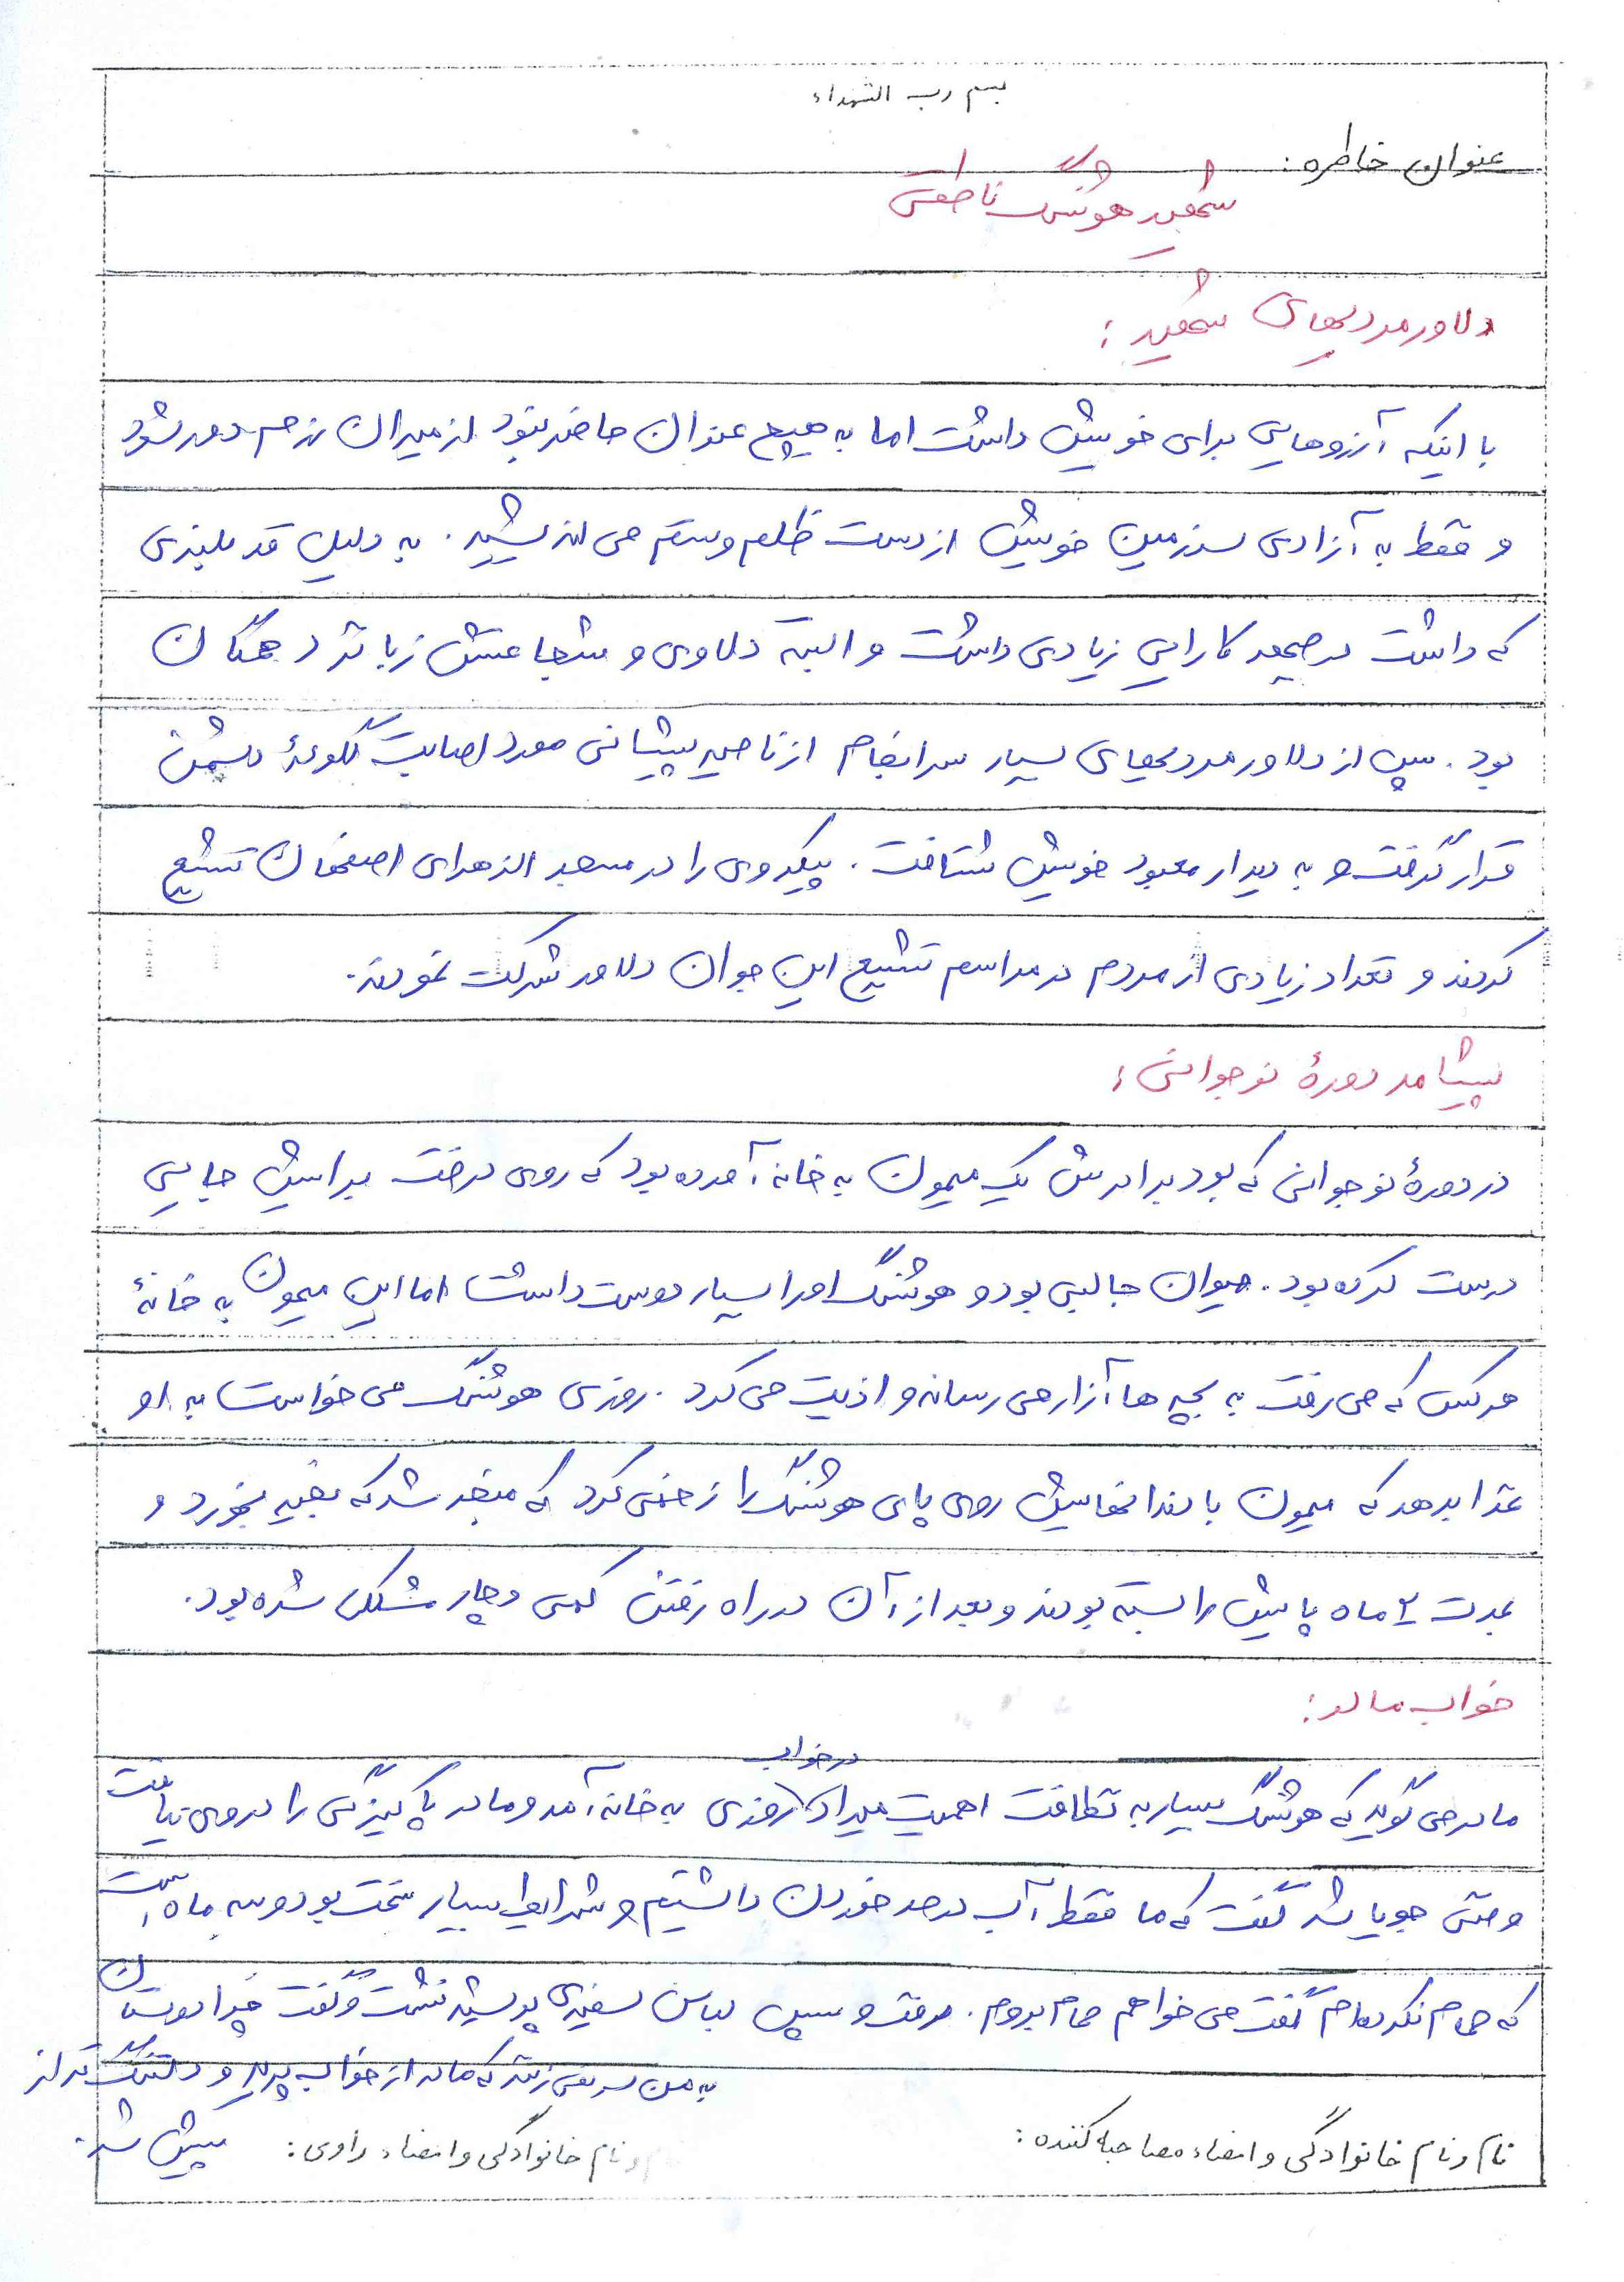 بسم رب الشهداء
عنوان خاطره:
شهید هوشنگ ناطقی
دلاور مردیهای شهید:
با اینکه آرزوهایی برای خویش داشت اما به هیچ عنوان حاضر نبود از میدان رزم دور شود
و فقط به آزادی سرزمین خویش از دست ظلم و ستم می اندیشید. به دلیل قد بلندی
که داشت در جبهه کارایی زیادی داشت و البته دلاوی و شجاعتش زبانزد همگان
بود. سپس از دلاور مردیهای بسیار سرانجام از ناحیه پیشانی مورد اصابت گلولهٔ دشمن
قرار گرفت و به دیدار معبود خویش شتافت. پیکر وی را در مسجد الزهرای اصفهان تشیع
کردند و تعداد زیادی از مردم در مراسم تشیع این جوان دلاور شرکت نمودند.
پیشامد دورهٔ نوجوانی:
در دورهٔ نوجوانی که بود برادرش یک میمون به خانه آورده بود که روی درخت برایش جایی
درست کرده بود. حیوان جالبی بود و هوشنگ اورا بسیار دوست داشت اما این میمون به خانهٔ
هرکس که می رفت به بچه ها آزار می رساند و اذیت می کرد. روزی هوشنگ می خواست به او
غذا بدهد که میمون با دندانهایش روی پای هوشنگ را زخمی کرد که منجر شد که بخیه بخورد و
بمدت ۲ ماه پایش را بسته بودند و بعد از آن در راه رفتن کمی دچار مشکل شده بود.
خواب مادر:
مادر می گوید که هوشنگ بسیار به نظافت اهمیت میداد. روزی در خواب به خانه آمد و مادر پاکیزگی را در وی نیافت
وقتی جویا شد گفت که ما فقط آب در حد خوردن داشتیم و شرایط بسیار سخت بود و سه ماه است
که حمام نکرده ام گفت می خواهم حمام بروم. رفت و سپس لباس سفیدی پوشید نشست و گفت چرا دوستان
به من سر نمی زنند که مادر از خواب پرید و دلتنگ تر از
پیش شد.
نام و نام خانوادگی و امضاء مصاحبه کننده:
نام و نام خانوادگی و امضاء راوی: